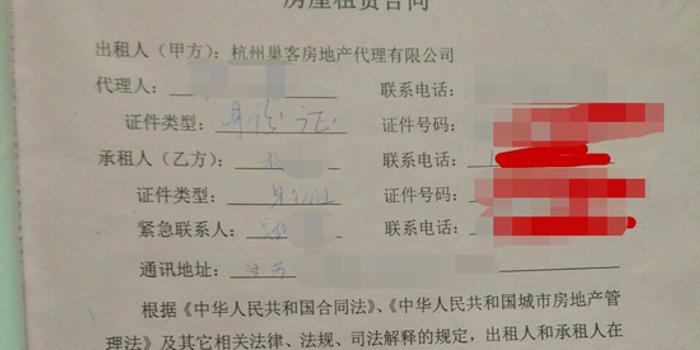 房屋租赁合同
出租人（甲方）：杭州巢客房地产代理有限公司
代理人： 联系电话：
证件类型：身份证 证件号码：
承租人（乙方）： 联系电话：
证件类型：身份证 证件号码：
紧急联系人： 联系电话：
通讯地址：江苏
根据《中华人民共和国合同法》、《中华人民共和国城市房地产管
理法》及其它相关法律、法规、司法解释的规定，出租人和承租人在